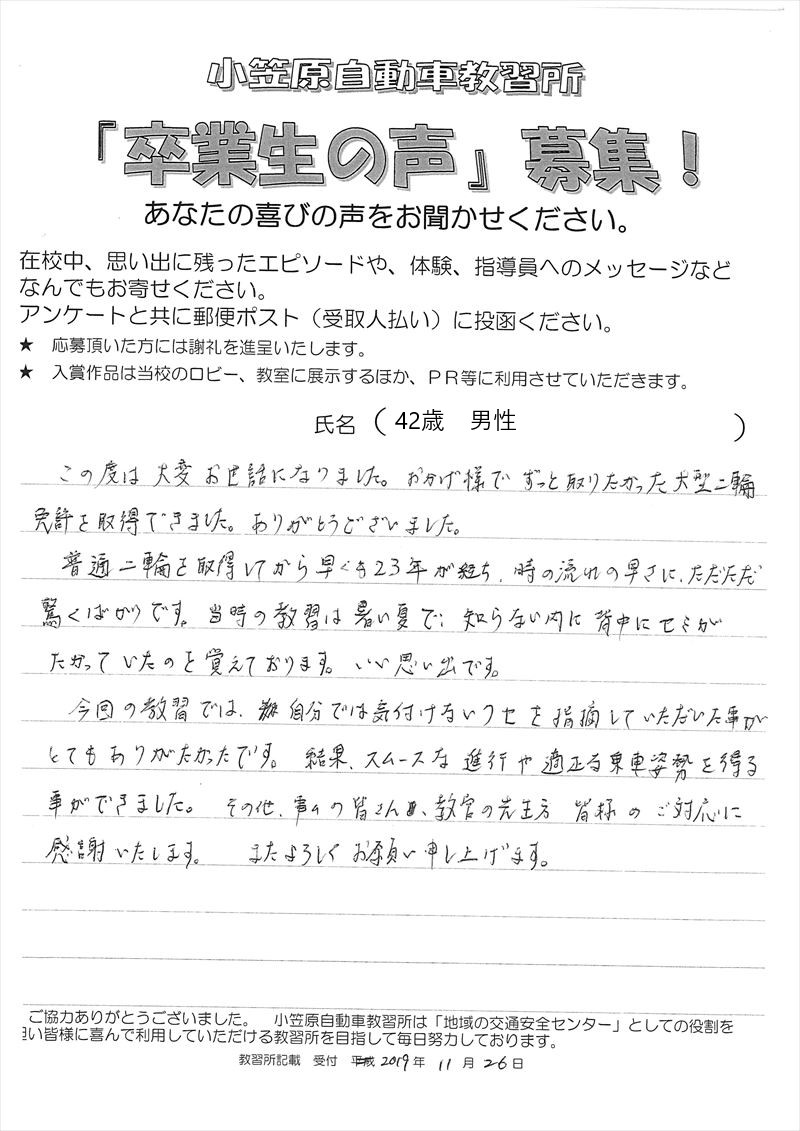 小笠原自動車教習所
『卒業生の声』募集!
あなたの喜びの声をお聞かせください。
在校中、思い出に残ったエピソードや、体験、指導員へのメッセージなど
なんでもお寄せください。
アンケートと共に郵便ポスト（受取人払い）に投函ください。
★ 応募頂いた方には謝礼を進呈いたします。
★ 入賞作品は当校のロビー、教室に展示するほか、ＰＲ等に利用させていただきます。
氏名 （ 42歳 男性 ）
この度は大変お世話になりました。おかげ様でずっと取りたかった大型二輪
免許を取得できました。ありがとうございました。
普通二輪を取得してから早くも23年が経ち、時の流れの早さに、ただただ
驚くばかりです。当時の教習は暑い夏で、知らない内に背中にセミが
たかっていたのを覚えております。いい思い出です。
今回の教習では、自分では気付けないクセを指摘していただいた事が
とてもありがたかったです。結果、スムースな進行や適正な乗車姿勢を得る
事ができました。その他、事ムの皆さん、教官の先生方皆様のご対応に
感謝いたします。 またよろしくお願い申し上げます。
ご協力ありがとうございました。 小笠原自動車教習所は「地域の交通安全センター」としての役割を
担い皆様に喜んで利用していただける教習所を目指して毎日努力しております。
教習所記載 受付 平成 2019年 11月 26日